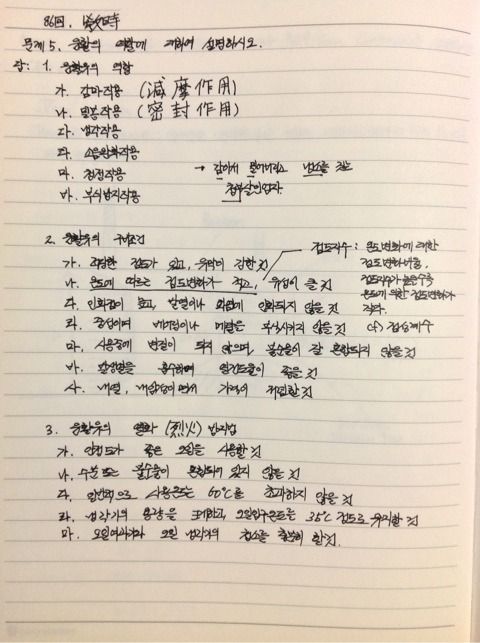 86회.
문제 5. 윤활의 역할에 대하여 설명하시오.
답: 1. 윤활유의 역할
가. 감마작용 (減摩作用)
나. 밀봉작용 (密封作用)
다. 냉각작용
라. 소음완화작용
마. 청정작용 → 감아서 밀어내리고 냉소를 청소
바. 부식방지작용
2. 윤활유의 구비조건
가. 적당한 점도가 있고, 유막이 강한 것
나. 온도에 따르는 점도변화가 적고, 유성이 클 것
점도지수 : 온도변화에 대한
점도변화비율,
점도지수가 높을수록
온도에 의한 점도변화가
적다.
다. 인화점이 높고, 발열이나 화염에 인화되지 않을 것
라. 중성이며 베어링이나 메탈을 부식시키지 않을 것
cf) 점성계수
마. 사용중에 변질이 되지 않으며, 불순물이 잘 혼합되지 않을 것
바. 발생열을 흡수하여 열전도율이 좋을 것
사. 내열, 내압성이면서 가격이 저렴할 것
3. 윤활유의 열화 (烈火) 방지법
가. 안정도가 좋은 오일을 사용할 것
나. 수분 또는 불순물이 혼합되어 있지 않을 것
다. 일반적으로 사용온도는 60℃를 초과하지 않을 것
라. 냉각기의 용량을 크게하고, 오일입구온도는 35℃ 정도로 유지할 것
마. 오일여과기와 오일 냉각기의 청소를 충분히 할 것.